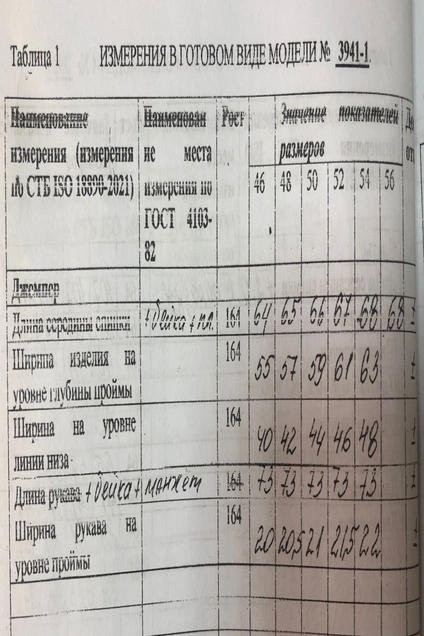 Таблица 1 ИЗМЕРЕНИЯ В ГОТОВОМ ВИДЕ МОДЕЛИ № 3941-1.
Наименование Наименован Рост Значение показателей До
измерения (измерения ие места размеров от
по СТБ ISO 18890-2021) измерения по 46 48 50 52 54 56
ГОСТ 4103-
82
Джемпер
Длина середины спинки + бейка + пл. 164 64 65 66 67 68 68 ±
Ширина изделия на 164 55 57 59 61 63 ±
уровне глубины проймы
Ширина на уровне 164 40 42 44 46 48 ±
линии низа
Длина рукава + бейка + манжет 164 73 73 73 73 73 ±
Ширина рукава на 164 20 20,5 21 21,5 22 ±
уровне проймы